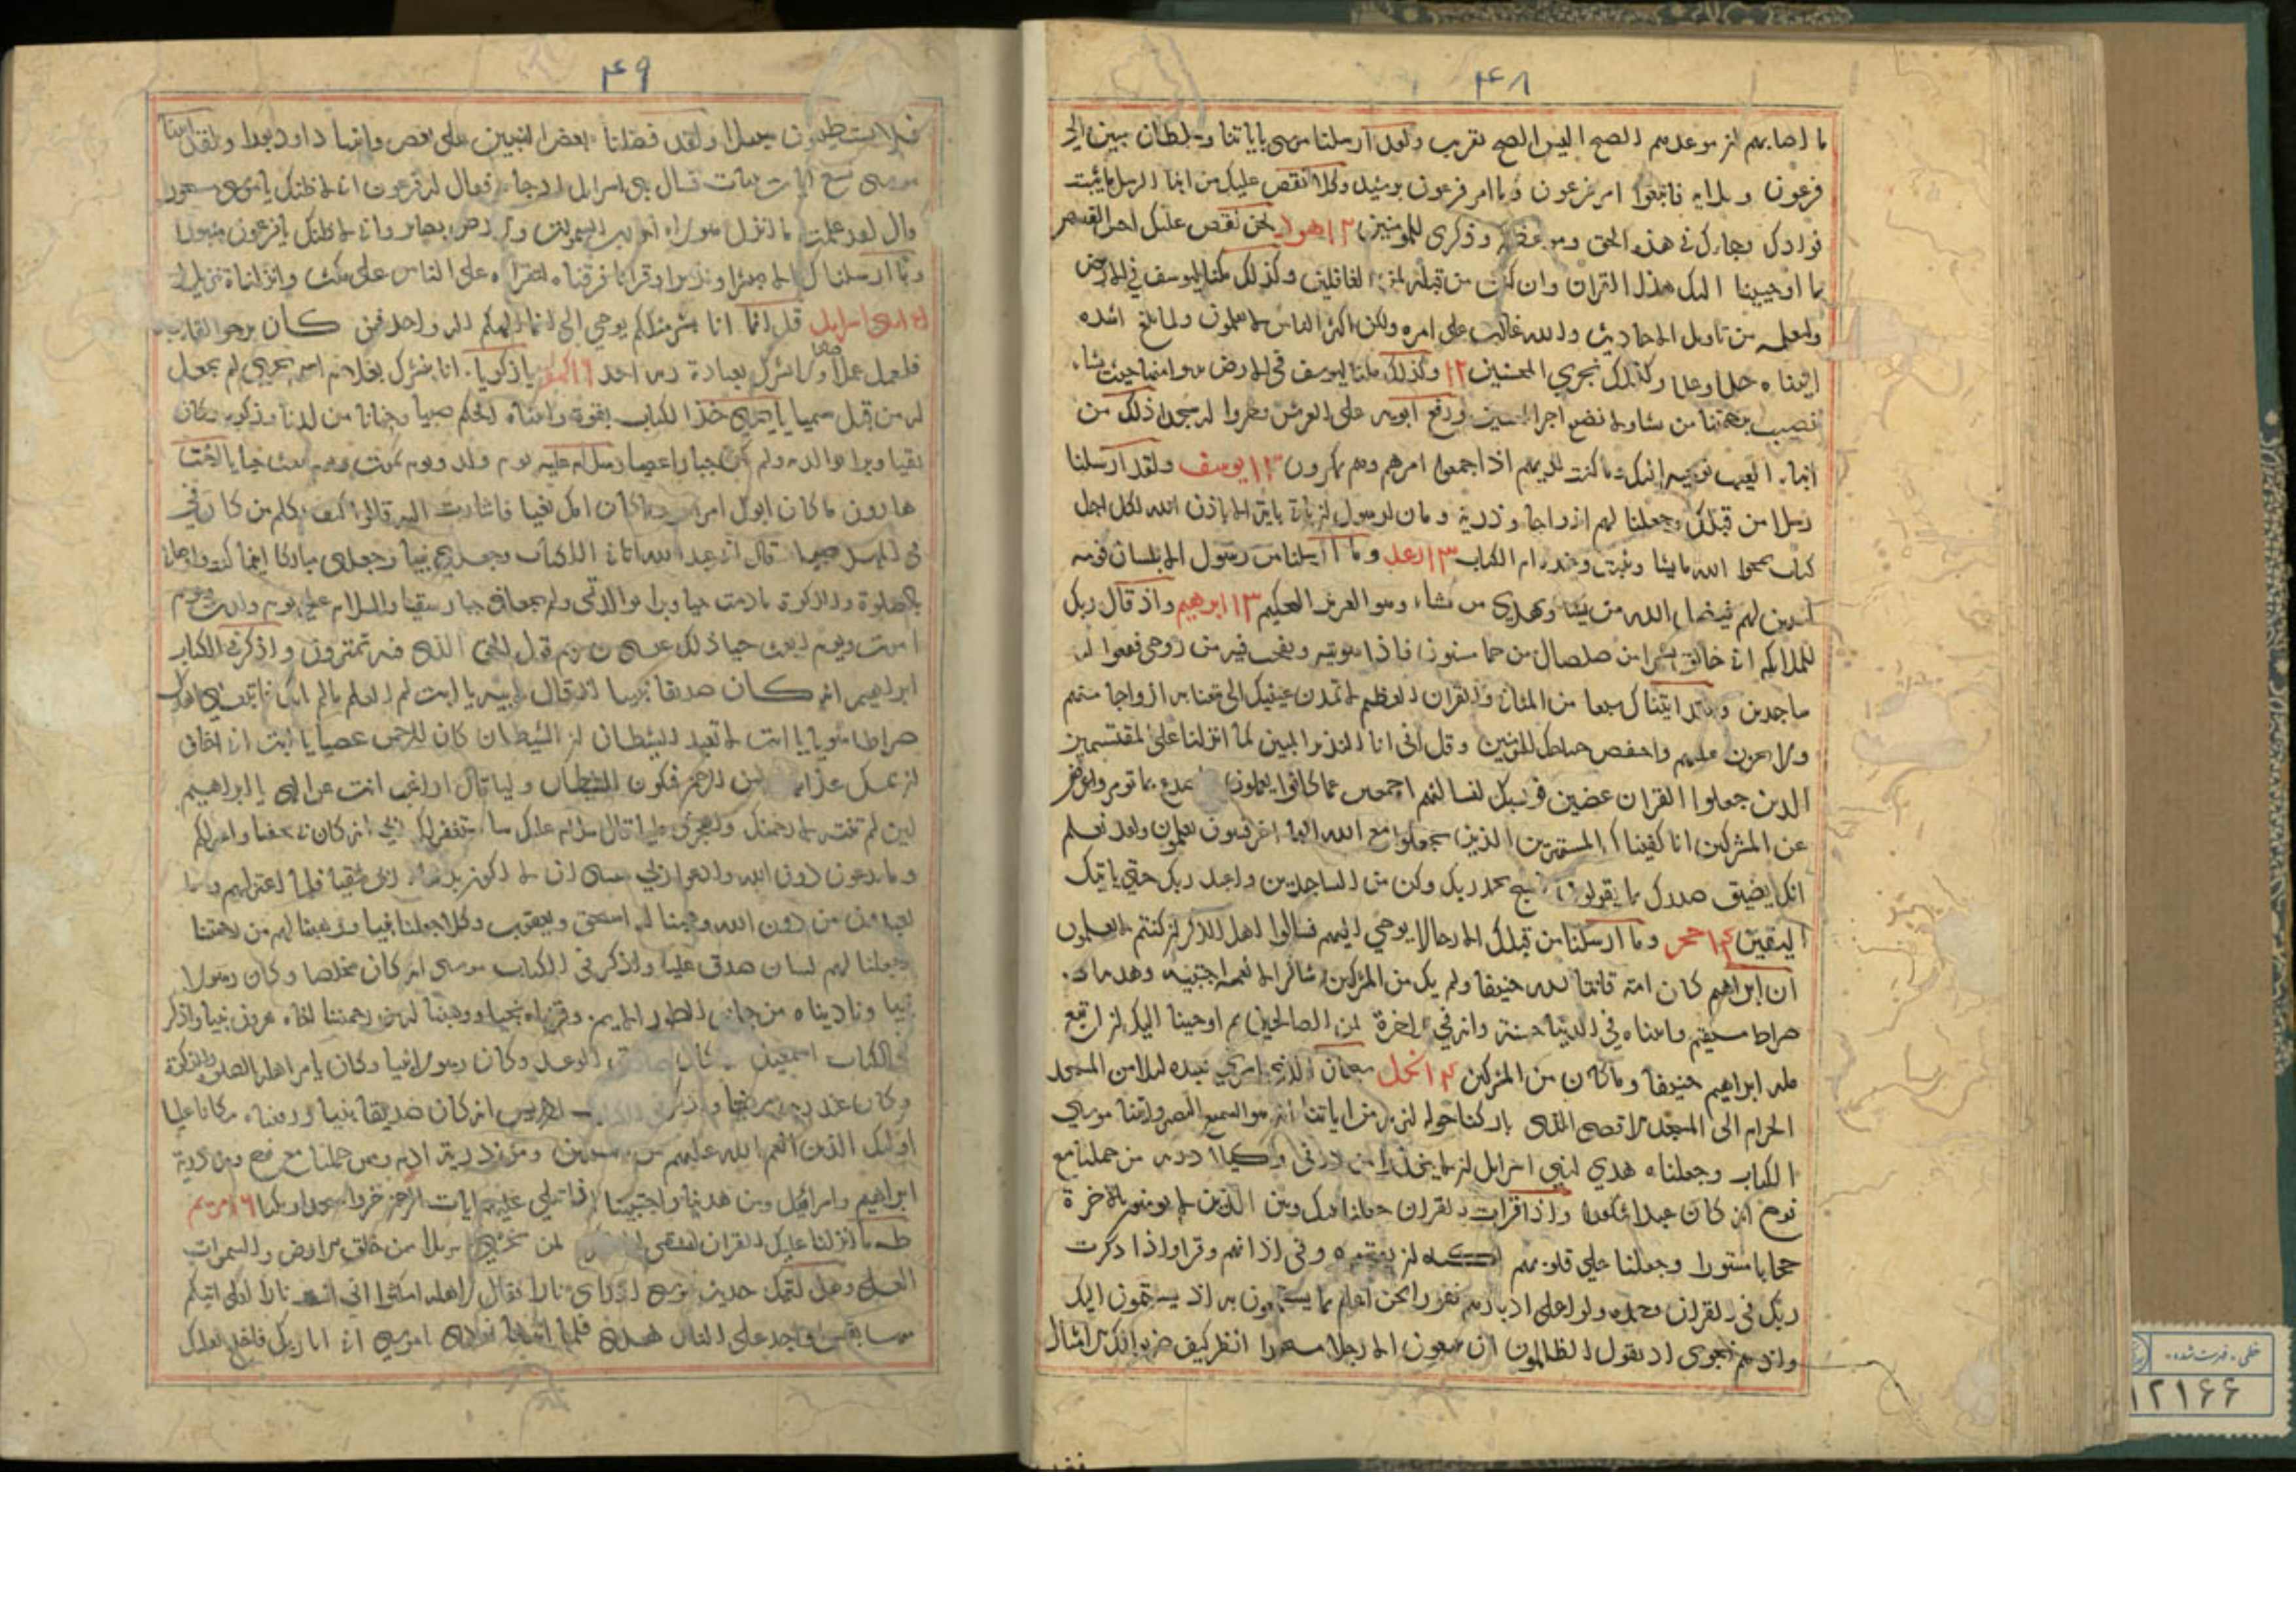 ۴۸
ما اصابهم ان موعدهم الصبح اليس الصبح بقريب ولقد ارسلنا موسى باياتنا وسلطان مبين الى
فرعون وملايه فاتبعوا امر فرعون وما امر فرعون برشيد وكلا نقص عليك من انبا الرسل ما نثبت
فوادك وجاءك فى هذه الحق وموعظة وذكرى للمومنين ۱۲ هود نحن نقص عليك احسن القصص
بما اوحينا اليك هذا القران وان كنت من قبله لمن الغافلين وكذلك مكنا ليوسف في الارض
ولنعلمه من تاويل الاحاديث والله غالب على امره ولكن اكثر الناس لا يعلمون ولما بلغ اشده
اتيناه حكما وعلما وكذلك نجزي المحسنين ۱۲ وكذلك مكنا ليوسف فى الارض يتبوا منها حيث يشاء
نصيب برحمتنا من نشا ولا نضيع اجر المحسنين ورفع ابويه على العرش وخروا له سجدا ذلك من
انباء الغيب نوحيه اليك وما كنت لديهم اذ اجمعوا امرهم وهم يمكرون يوسف ولقد ارسلنا
رسلا من قبلك وجعلنا لهم ازواجا وذرية وما كان لرسول ان ياتي باية الا باذن الله لكل اجل
كتاب يمحوا الله ما يشا ويثبت وعنده ام الكتاب ۱۳ رعد وما ارسلنا من رسول الا بلسان قومه
ليبين لهم فيضل الله من يشا ويهدي من يشاء وهو العزيز الحكيم ۱۳ ابرهيم واذ قال ربك
للملائكه انى خالق بشرا من صلصال من حما مسنون فاذا سويته ونفخت فيه من روحى فقعوا له
ساجدين ولقد اتيناك سبعا من المثاني والقران العظيم لا تمدن عينيك الى ما متعنا به ازواجا منهم
ولا تحزن عليهم واخفض جناحك للمومنين وقل انى انا النذير المبين كما انزلنا على المقتسمين
الذين جعلوا القران عضين فوربك لنسالنهم اجمعين عما كانوا يعملون فاصدع بما تومر واعرض
عن المشركين انا كفيناك المستهزين الذين يجعلون مع الله الها اخر فسوف يعلمون ولقد نعلم
انك يضيق صدرك بما يقولون فسبح بحمد ربك وكن من الساجدين واعبد ربك حتى ياتيك
اليقين ۱۴ حجر وما ارسلنا من قبلك الا رجالا يوحي اليهم فسالوا اهل الذكر ان كنتم لا تعلمون
ان ابراهيم كان امة قانتا لله حنيفا ولم يك من المشركين شاكرا لانعمه اجتبيه وهديه الى
صراط مستقيم واتيناه في الدنيا حسنة وانه في الاخرة لمن الصالحين ثم اوحينا اليك ان اتبع
ملة ابراهيم حنيفا وما كان من المشركين ۱۴ نحل سبحان الذي اسرى بعبده ليلا من المسجد
الحرام الى المسجد الاقصى الذى باركنا حوله لنريه من اياتنا انه هو السميع البصير واتينا موسى
الكتاب وجعلناه هدي لبني اسرايل ان لا يتخذوا من دوني وكيلا ذرية من حملنا مع
نوح انه كان عبدا شكورا واذا قرات القران جعلنا بينك وبين الذين لا يومنون بالاخرة
حجابا مستورا وجعلنا على قلوبهم اكنة ان يفقهوه وفى اذانهم وقرا واذا ذكرت
ربك فى القران وحده ولوا على ادبارهم نفورا نحن اعلم بما يستمعون به اذ يستمعون اليك
واذ هم نجوى اذ يقول الظالمون ان تتبعون الا رجلا مسحورا انظر كيف ضربوا لك الامثال
۴۹
فلا يستطيعون سبيلا ولقد فضلنا بعض النبيين على بعض واتينا داود زبورا ولقد اتينا
موسى تسع ايات بينات فسال بنى اسرايل اذ جاءهم فقال له فرعون انى لاظنك يا موسى مسحورا
قال لقد علمت ما انزل هولاء الا رب السموات والارض بصاير وانى لاظنك يا فرعون مثبورا
وما ارسلناك الا مبشرا ونذيرا وقرانا فرقناه لتقراه على الناس على مكث وانزلناه تنزيلا
بنى اسرايل قل انما انا بشر مثلكم يوحي الى انما الهكم اله واحد فمن كان يرجوا لقاء ربه
فليعمل عملا صالحا ولا يشرك بعبادة ربه احدا ۱۶ الكهف يا زكريا انا نبشرك بغلام اسمه يحيي لم نجعل
له من قبل سميا يا يحيى خذ الكتاب بقوة واتيناه الحكم صبيا وحنانا من لدنا وزكوة وكان
تقيا وبرا بوالديه ولم يكن جبارا عصيا وسلام عليه يوم ولد ويوم يموت ويوم يبعث حيا يا اخت
هارون ما كان ابوك امرا سوء وما كانت امك بغيا فاشارت اليه قالوا كيف نكلم من كان في
فى المهد صبيا قال انى عبد الله اتانى الكتاب وجعلنى نبيا وجعلنى مباركا اينما كنت واوصاني
بالصلوة والزكوة ما دمت حيا وبرا بوالدتي ولم يجعلني جبارا شقيا والسلام على يوم ولدت ويوم
اموت ويوم ابعث حيا ذلك عيسى بن مريم قول الحق الذى فيه تمترون واذكر فى الكتاب
ابراهيم انه كان صديقا نبيا اذ قال لابيه يا ابت لم اعلم ما لم ياتك فاتبعنى اهدك
صراطا سويا يا ابت لا تعبد الشيطان ان الشيطان كان للرحمن عصيا يا ابت انى اخاف
ان يمسك عذاب من الرحمن فتكون للشيطان وليا قال اراغب انت عن الهتى يا ابراهيم
لين لم تنته لارجمنك واهجرنى مليا قال سلام عليك ساستغفر لك ربي انه كان بى حفيا واعتزلكم
وما تدعون من دون الله وادعوا ربي عسى ان لا اكون بدعاء ربي شقيا فلما اعتزلهم وما
يعبدون من دون الله وهبنا له اسحق ويعقوب وكلا جعلنا نبيا ووهبنا لهم من رحمتنا
وجعلنا لهم لسان صدق عليا واذكر فى الكتاب موسى انه كان مخلصا وكان رسولا
نبيا وناديناه من جانب الطور الايمن وقربناه نجيا ووهبنا له من رحمتنا اخاه هرون نبيا واذكر
فى الكتاب اسمعيل انه كان صادق الوعد وكان رسولا نبيا وكان يامر اهله بالصلوة والزكوة
وكان عند ربه مرضيا واذكر فى الكتاب ادريس انه كان صديقا نبيا ورفعناه مكانا عليا
اوليك الذين انعم الله عليهم من النبيين من ذرية ادم وممن حملنا مع نوح ومن ذرية
ابراهيم واسرائيل وممن هدينا واجتبينا اذا تتلي عليهم ايات الرحمن خروا سجدا وبكيا ۱۶ مريم
طه ما انزلنا عليك القران لتشقى الا تذكرة لمن يخشى تنزيلا ممن خلق الارض والسموات
العلى وهل اتيك حديث موسى اذ راى نارا فقال لاهله امكثوا انى انست نارا لعلى اتيكم
منها بقبس او اجد على النار هدى فلما اتيها نودى يا موسى انى انا ربك فاخلع نعليك
خطی - فهرست شده
۱۲۱۶۶